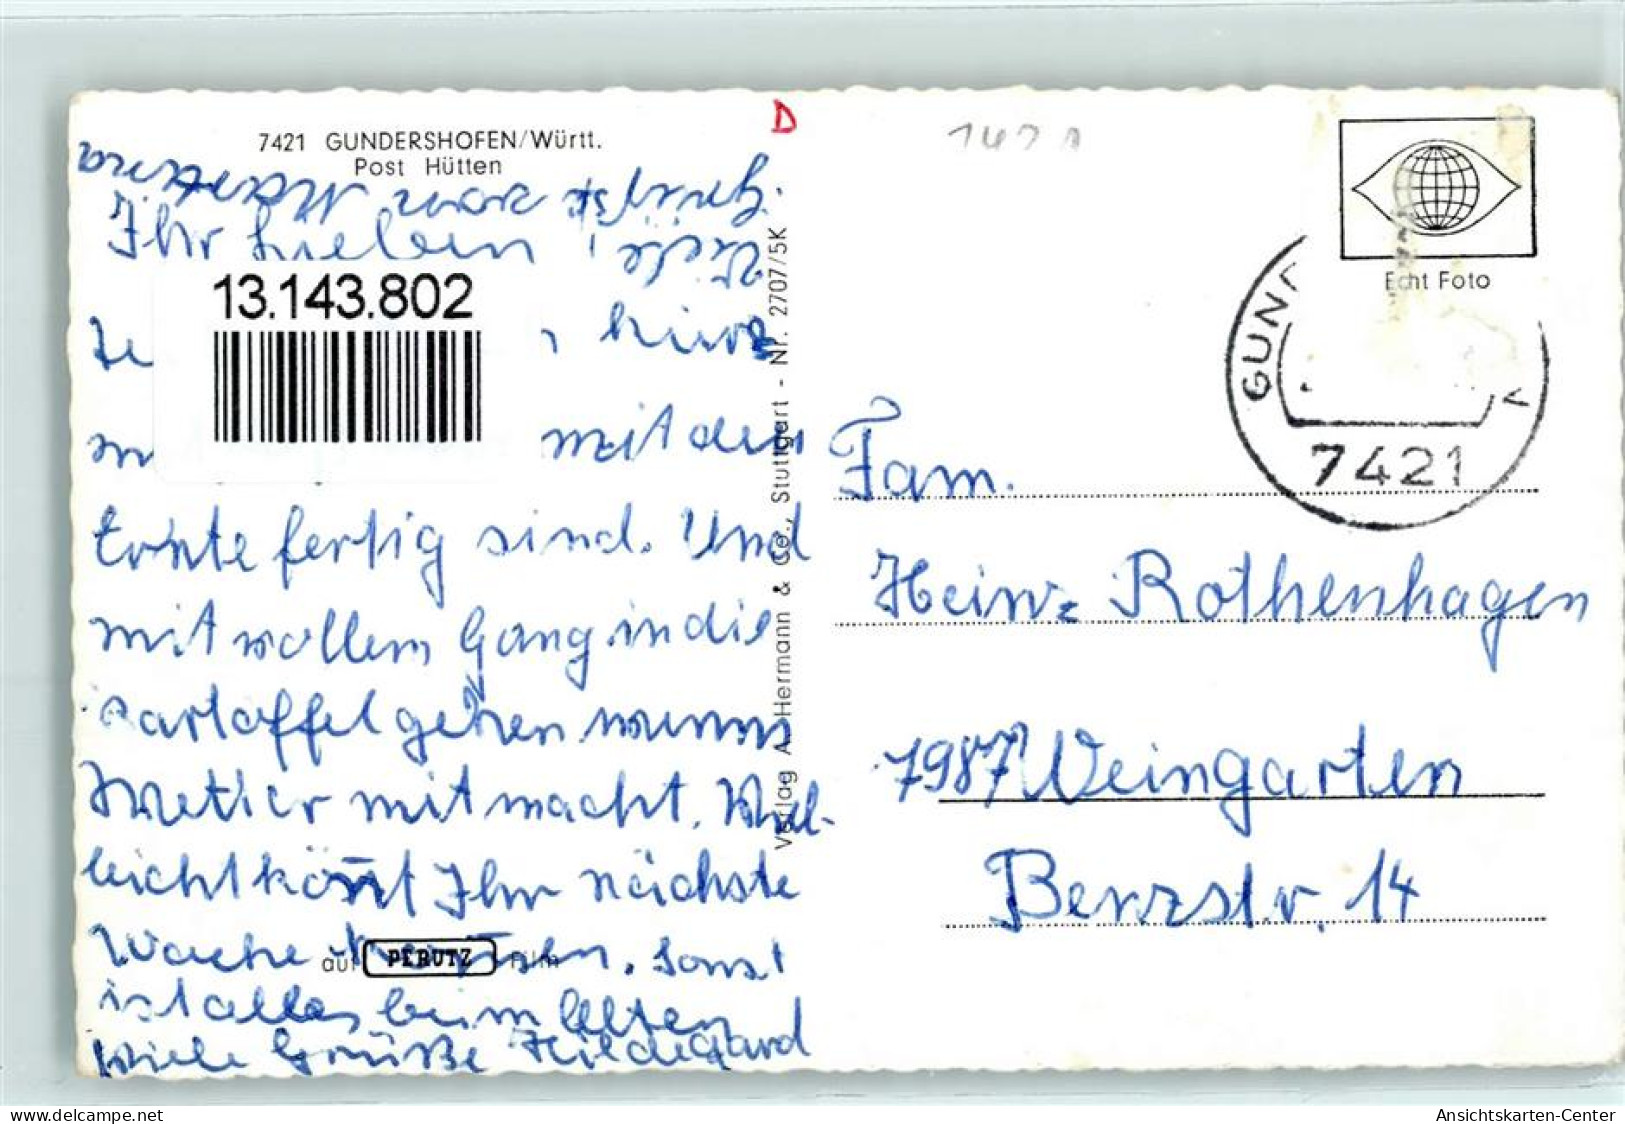 7421 GUNDERSHOFEN/Württ.
Post Hütten
Viele
Grüße von Martina
Ihr Lieben!
13.143.802
mit der
Ernte fertig sind. Und
mit vollem Gang in die
Kartoffel gehen wenns
Wetter mitmacht. Viel-
leicht könnt Ihr nächste
Woche kommen. Sonst
ist alles beim Alten
Viele Grüße Hildegard
auf PERUTZ Film
Verlag A. Hermann & Co., Stuttgart - Nr. 2707/5K
D
7421
Echt Foto
GUN
7421
Fam.
Heinz Rothenhagen
7987 Weingarten
Benzstr. 14
delcampe.net
Ansichtskarten-Center